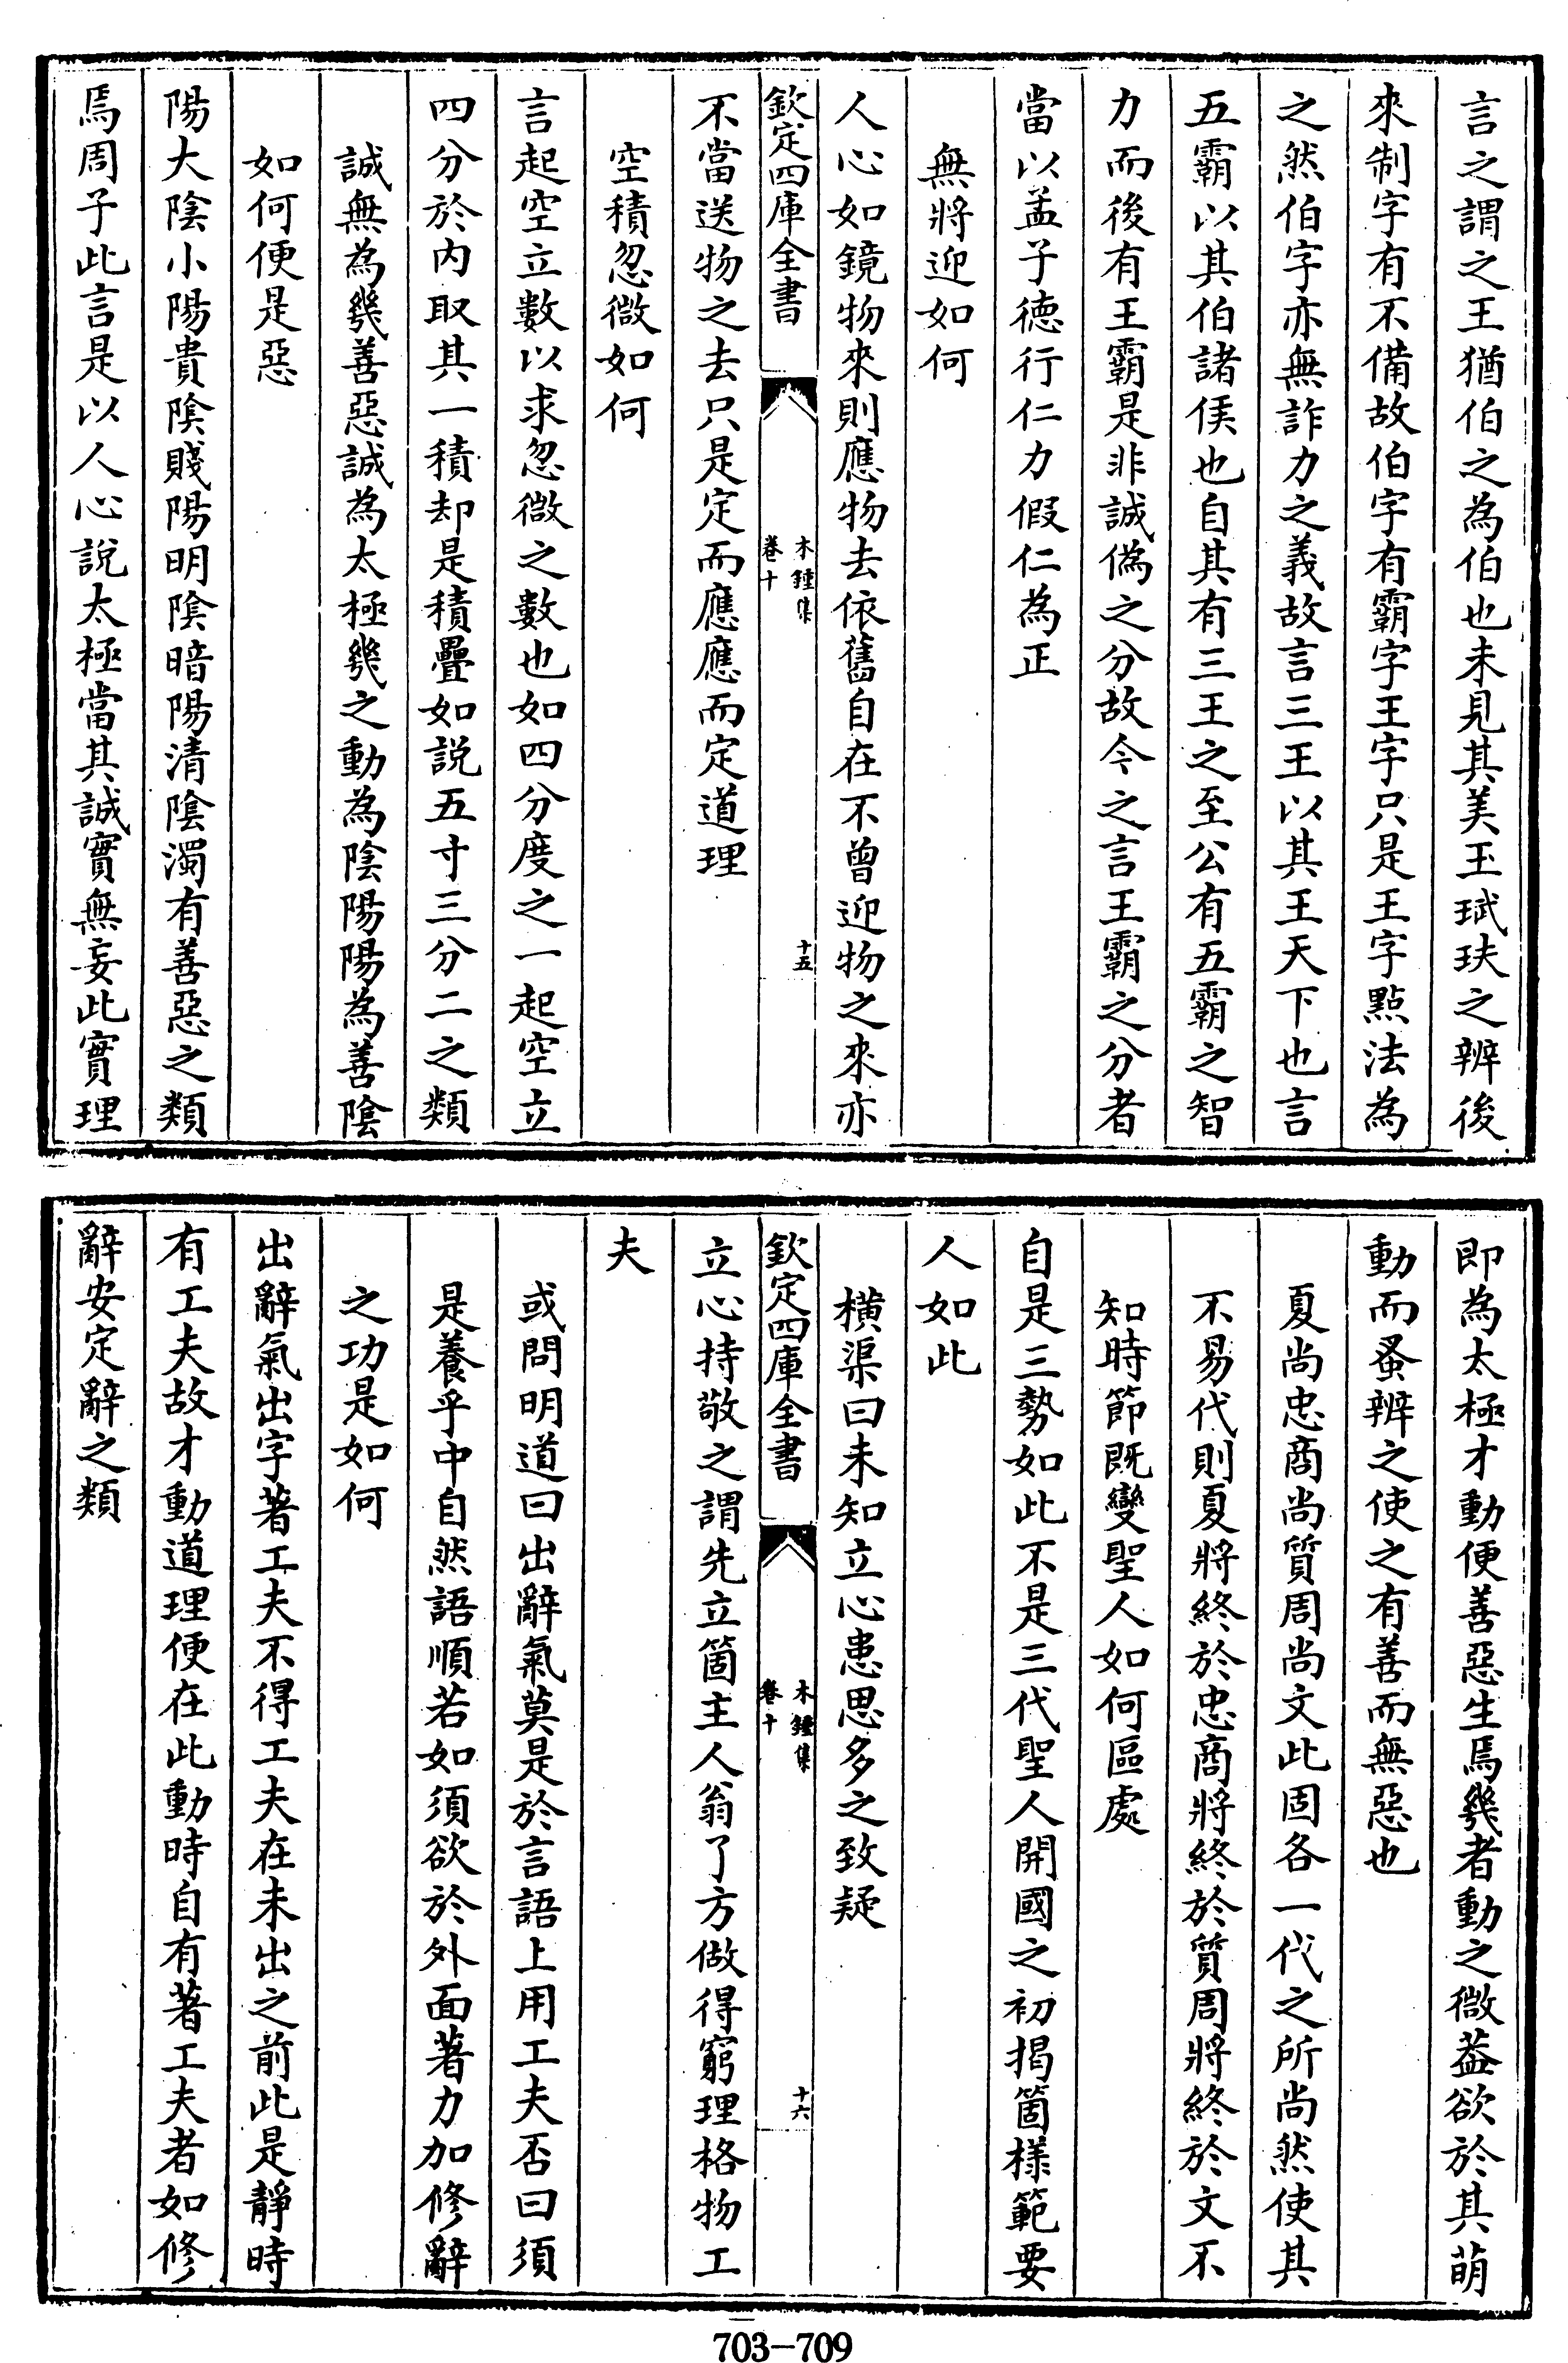 言之謂之王猶伯之為伯也未見其美玉珷玞之辨後
來制字有不備故伯字有霸字王字只是王字點法為
之然伯字亦無詐力之義故言三王以其王天下也言
五霸以其伯諸侯也自其有三王之至公有五霸之智
力而後有王霸是非誠偽之分故今之言王霸之分者
當以孟子德行仁力假仁為正
無將迎如何
人心如鏡物來則應物去依舊自在不曾迎物之來亦
欽定四庫全書
木鍾集
卷十
十五
不當送物之去只是定而應應而定道理
空積忽微如何
言起空立數以求忽微之數也如四分度之一起空立
四分於內取其一積却是積疊如説五寸三分二之類
誠無為幾善惡誠為太極幾之動為陰陽陽為善陰
如何便是惡
陽大陰小陽貴陰賤陽明陰暗陽清陰濁有善惡之類
焉周子此言是以人心説太極當其誠實無妄此實理
即為太極才動便善惡生焉幾者動之微葢欲於其萌
動而蚤辨之使之有善而無惡也
夏尚忠商尚質周尚文此固各一代之所尚然使其
不易代則夏將終於忠商將終於質周將終於文不
知時節既變聖人如何區處
自是三勢如此不是三代聖人開國之初揭箇樣範要
人如此
橫渠曰未知立心患思多之致疑
欽定四庫全書
木鍾集
卷十
十六
立心持敬之謂先立箇主人翁了方做得窮理格物工
夫
或問明道曰出辭氣莫是於言語上用工夫否曰須
是養乎中自然語順若如須欲於外面著力加修辭
之功是如何
出辭氣出字著工夫不得工夫在未出之前此是靜時
有工夫故才動道理便在此動時自有著工夫者如修
辭安定辭之類
703-709